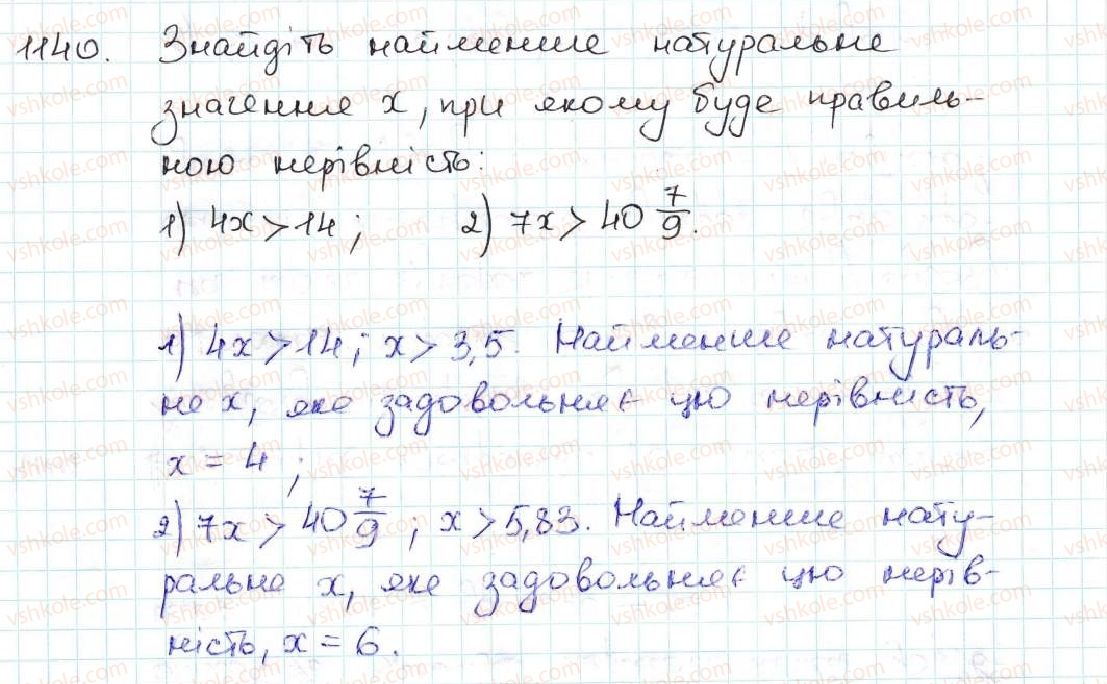 1140. Знайдіть найменше натуральне
значення x, при якому буде правиль-
ною нерівність:
1) 4x > 14; 2) 7x > 40 7/9.
1) 4x > 14; x > 3,5. Найменше натураль-
не x, яке задовольняє цю нерівність,
x = 4;
2) 7x > 40 7/9; x > 5,83. Найменше нату-
ральне x, яке задовольняє цю нерів-
ність, x = 6.